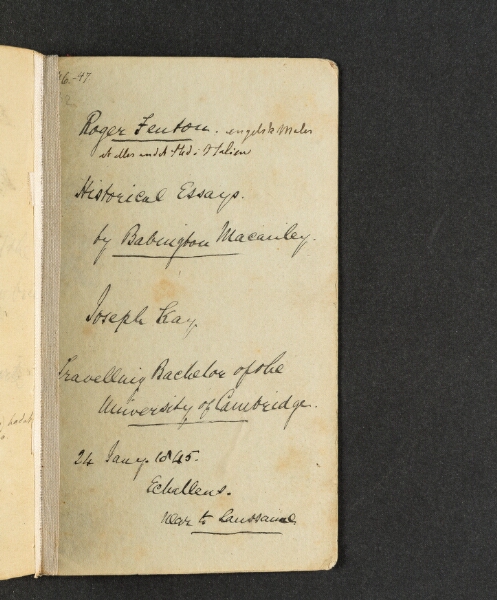 46-47
Roger Fenton. engelsk Maler
et eller andet Sted i Italien
Historical Essays.
by Babington Macauley.
Joseph Kay.
Travelling Bachelor of the
University of Cambridge.
24 Jany. 1845.
Echallens.
near to Laussanne